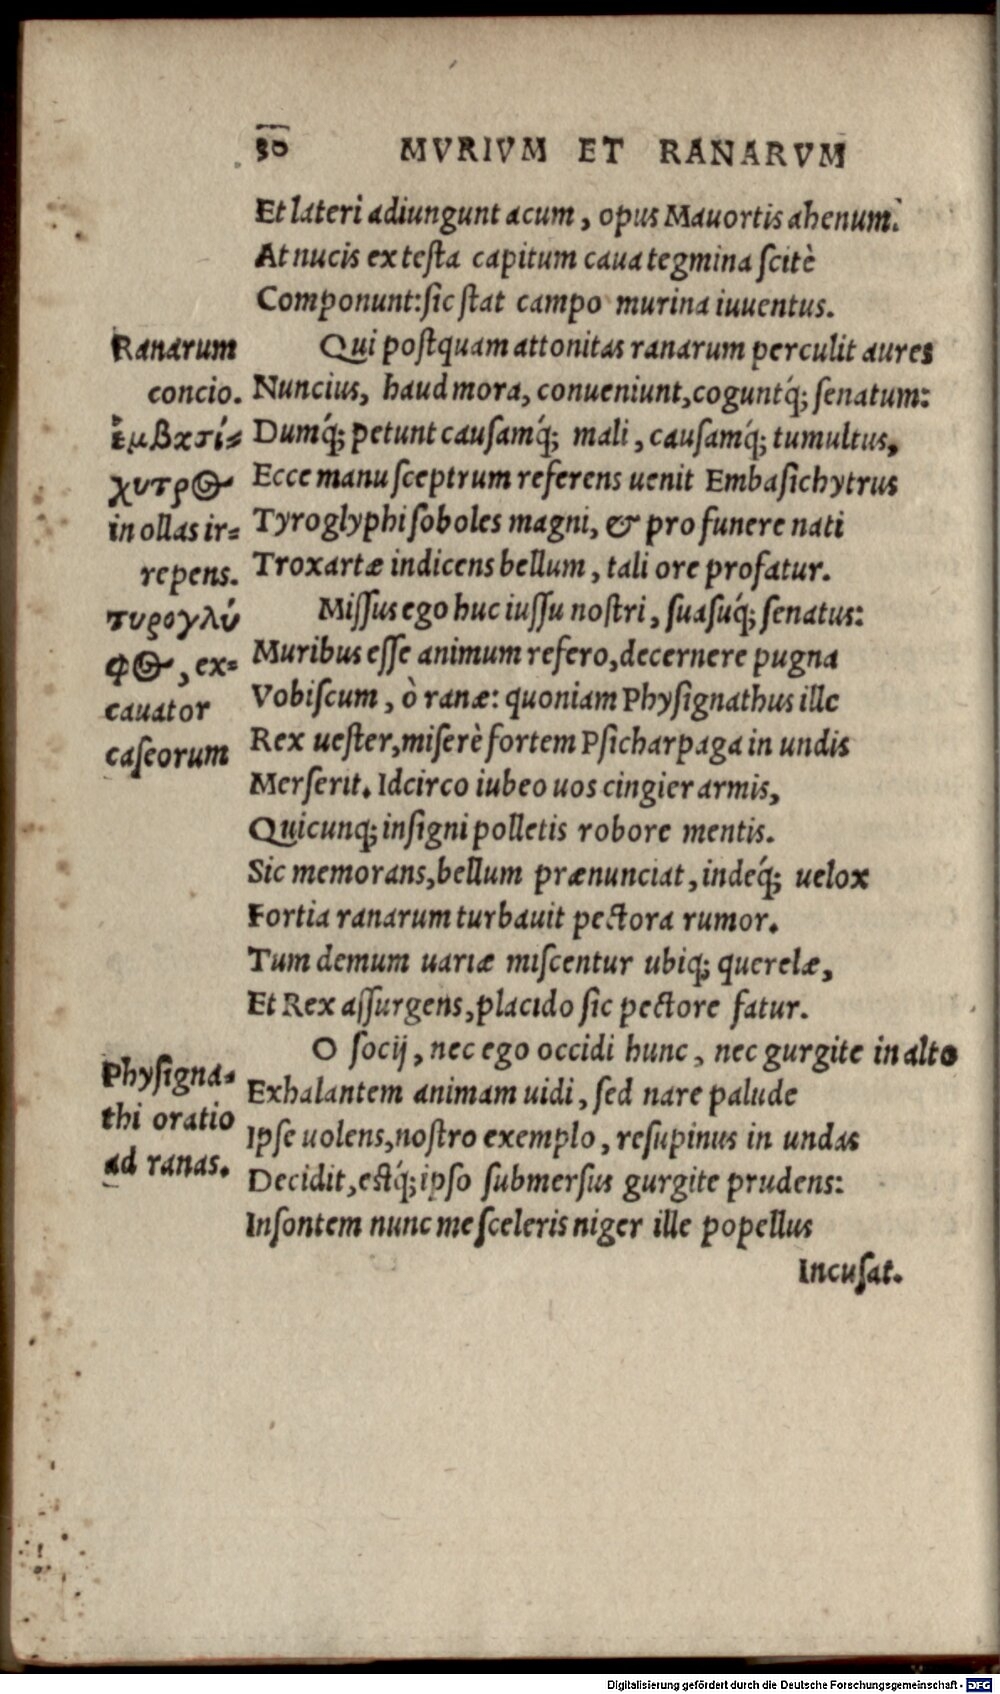 30 MVRIVM ET RANARVM
Et lateri adiungunt acum, opus Mauortis ahenum.
At nucis ex testa capitum caua tegmina scitè
Componunt: sic stat campo murina iuuentus.
Ranarum
concio.
ἐμβασί-
χυτρος
in ollas ir-
repens.
τυρογλύ
φος, ex-
cauator
caseorum
Qui postquam attonitas ranarum perculit aures
Nuncius, haud mora, conueniunt, coguntq́; senatum:
Dumq́; petunt causamq́; mali, causamq́; tumultus,
Ecce manu sceptrum referens uenit Embasichytrus
Tyroglyphi soboles magni, & pro funere nati
Troxartæ indicens bellum, tali ore profatur.
Missus ego huc iussu nostri, suasuq́; senatus:
Muribus esse animum refero, decernere pugna
Vobiscum, ò ranæ: quoniam Physignathus ille
Rex uester, miserè fortem Psicharpaga in undis
Merserit. Idcirco iubeo uos cingier armis,
Quicunq; insigni polletis robore mentis.
Sic memorans, bellum prænunciat, indeq́; uelox
Fortia ranarum turbauit pectora rumor.
Tum demum uariæ miscentur ubiq; querelæ,
Et Rex assurgens, placido sic pectore fatur.
Physigna-
thi oratio
ad ranas.
O socij, nec ego occidi hunc, nec gurgite in alto
Exhalantem animam uidi, sed nare palude
Ipse uolens, nostro exemplo, resupinus in undas
Decidit, estq́; ipso submersus gurgite prudens:
Insontem nunc me sceleris niger ille popellus
Incusat.
Digitalisierung gefördert durch die Deutsche Forschungsgemeinschaft - DFG